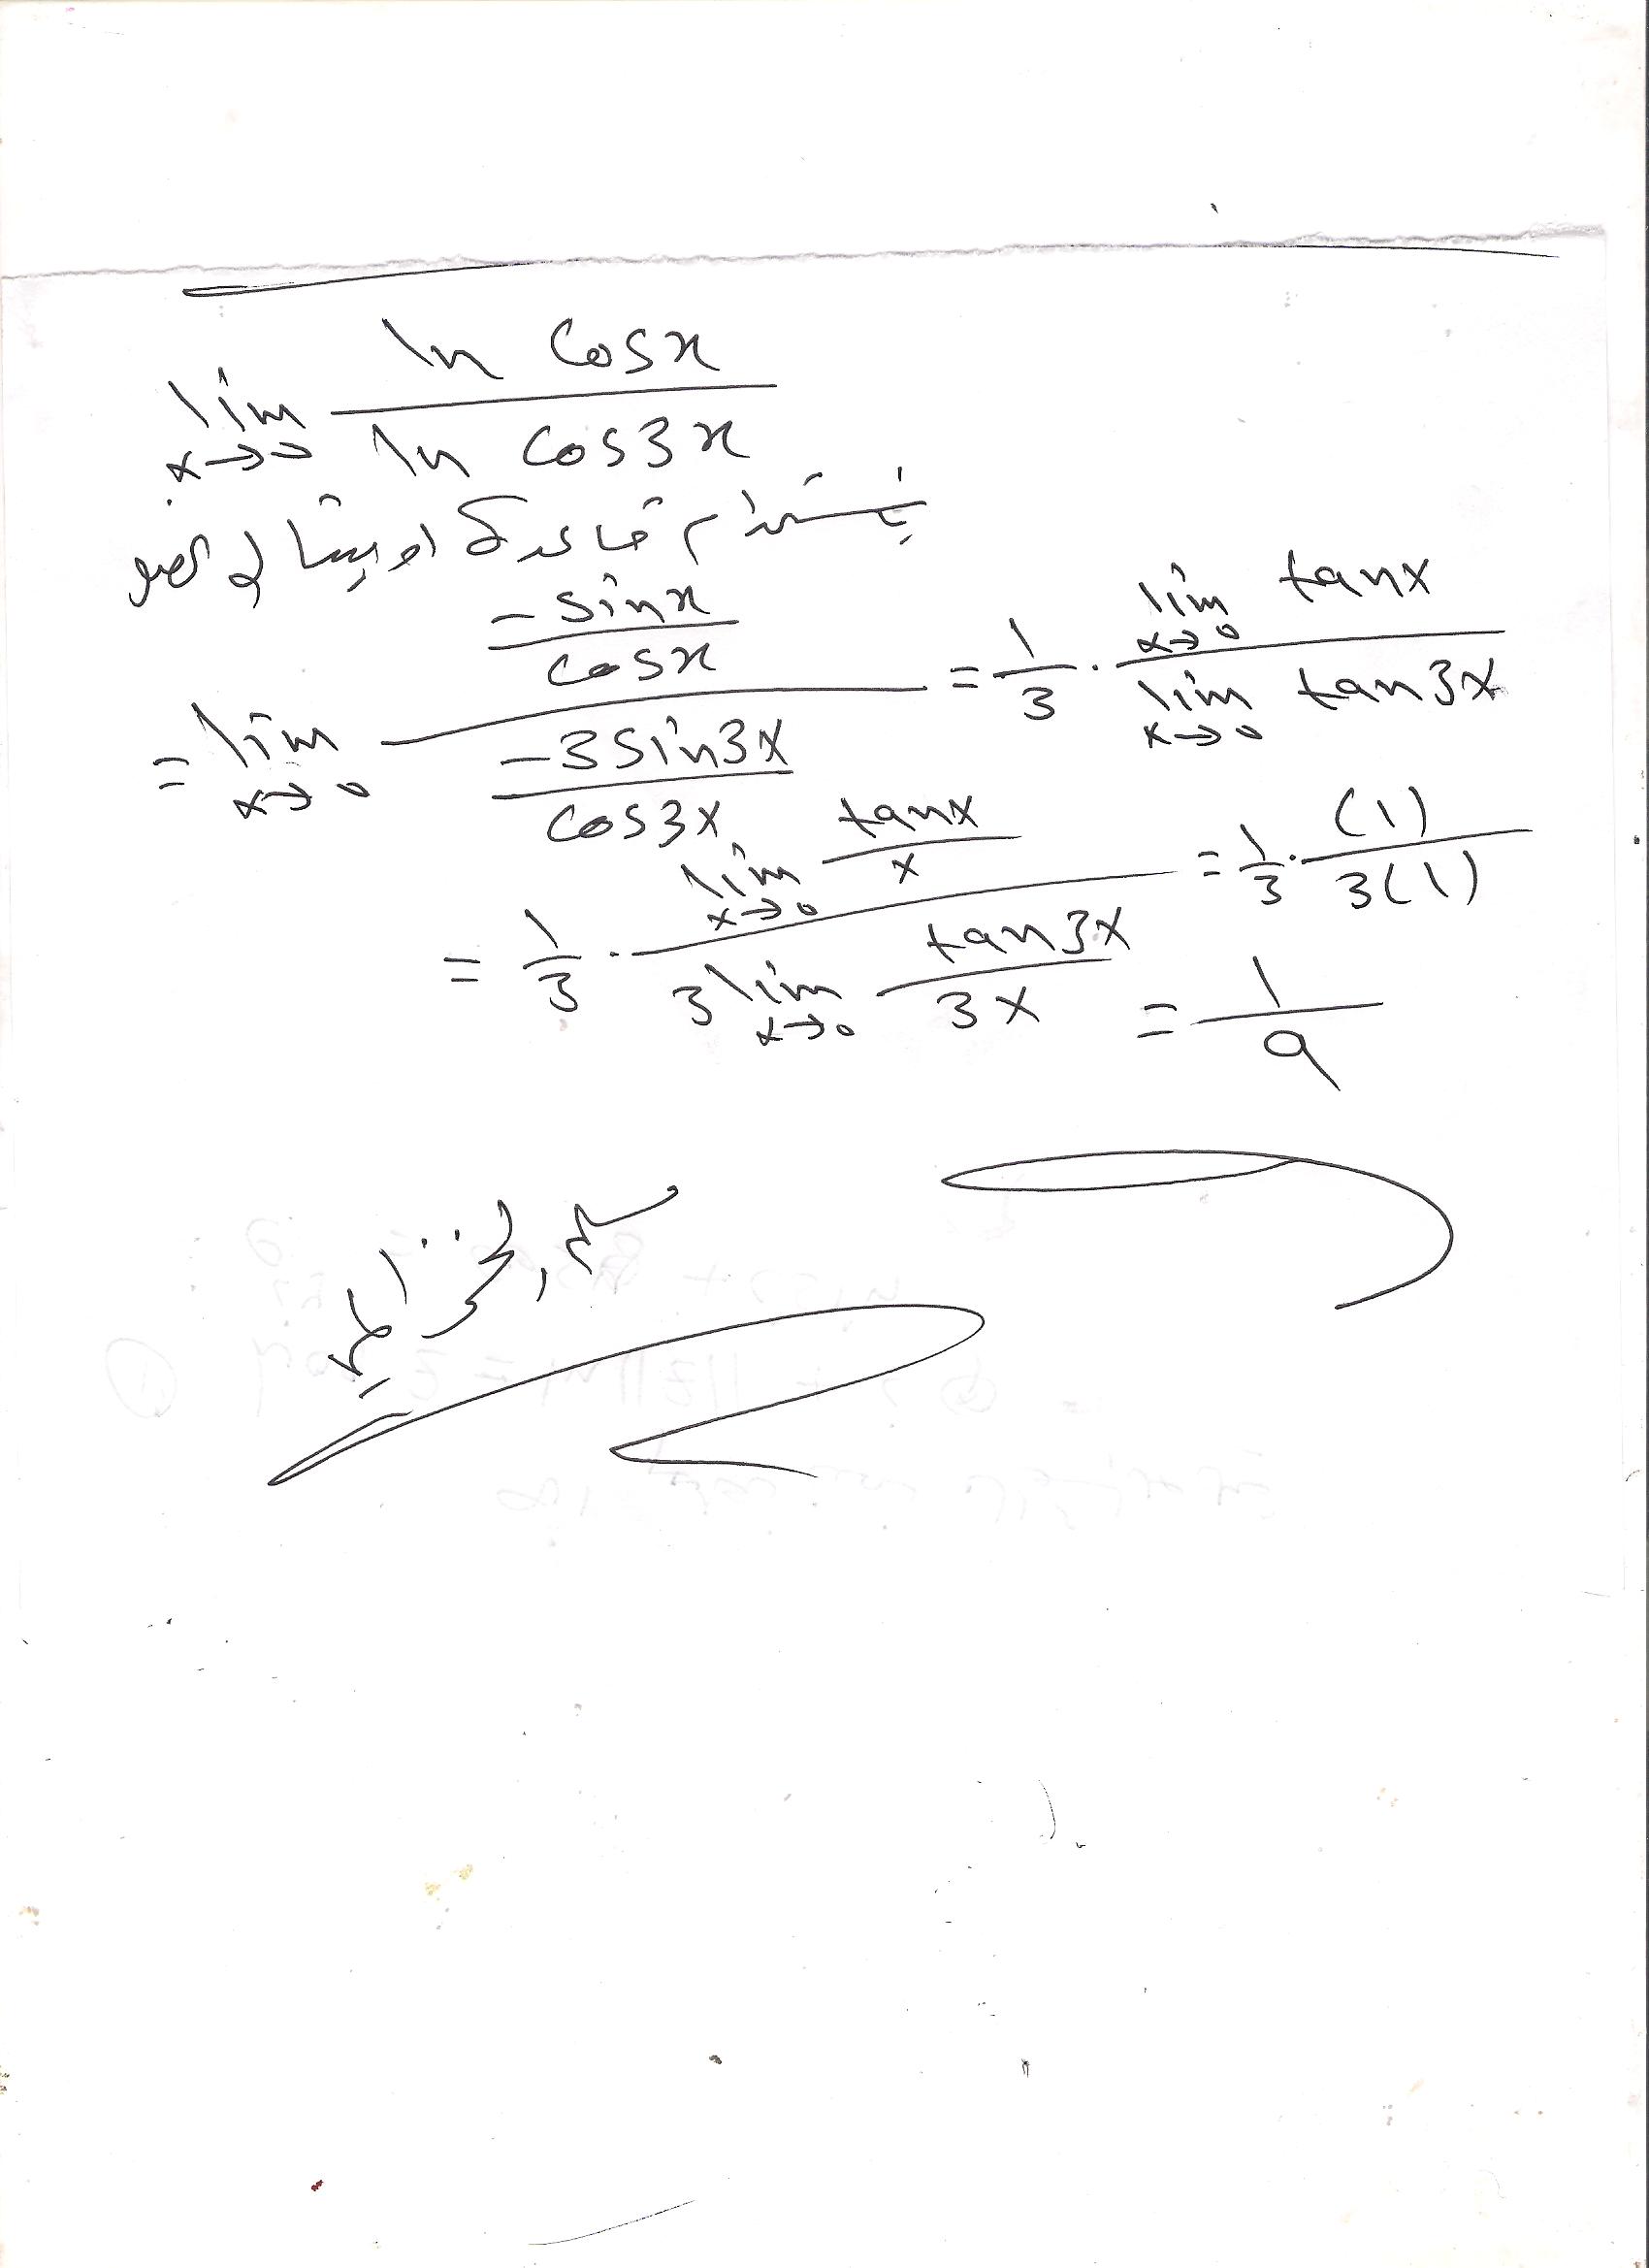 lim x→0 ln cosx / ln cos3x
باستخدام قاعدة لوبيتال
= lim x→0 (-sinx / cosx) / (-3sin3x / cos3x) = 1/3 · lim x→0 tanx / lim x→0 tan3x
= 1/3 · lim x→0 tanx/x / 3 lim x→0 tan3x/3x = 1/3 · (1) / 3(1)
= 1/9